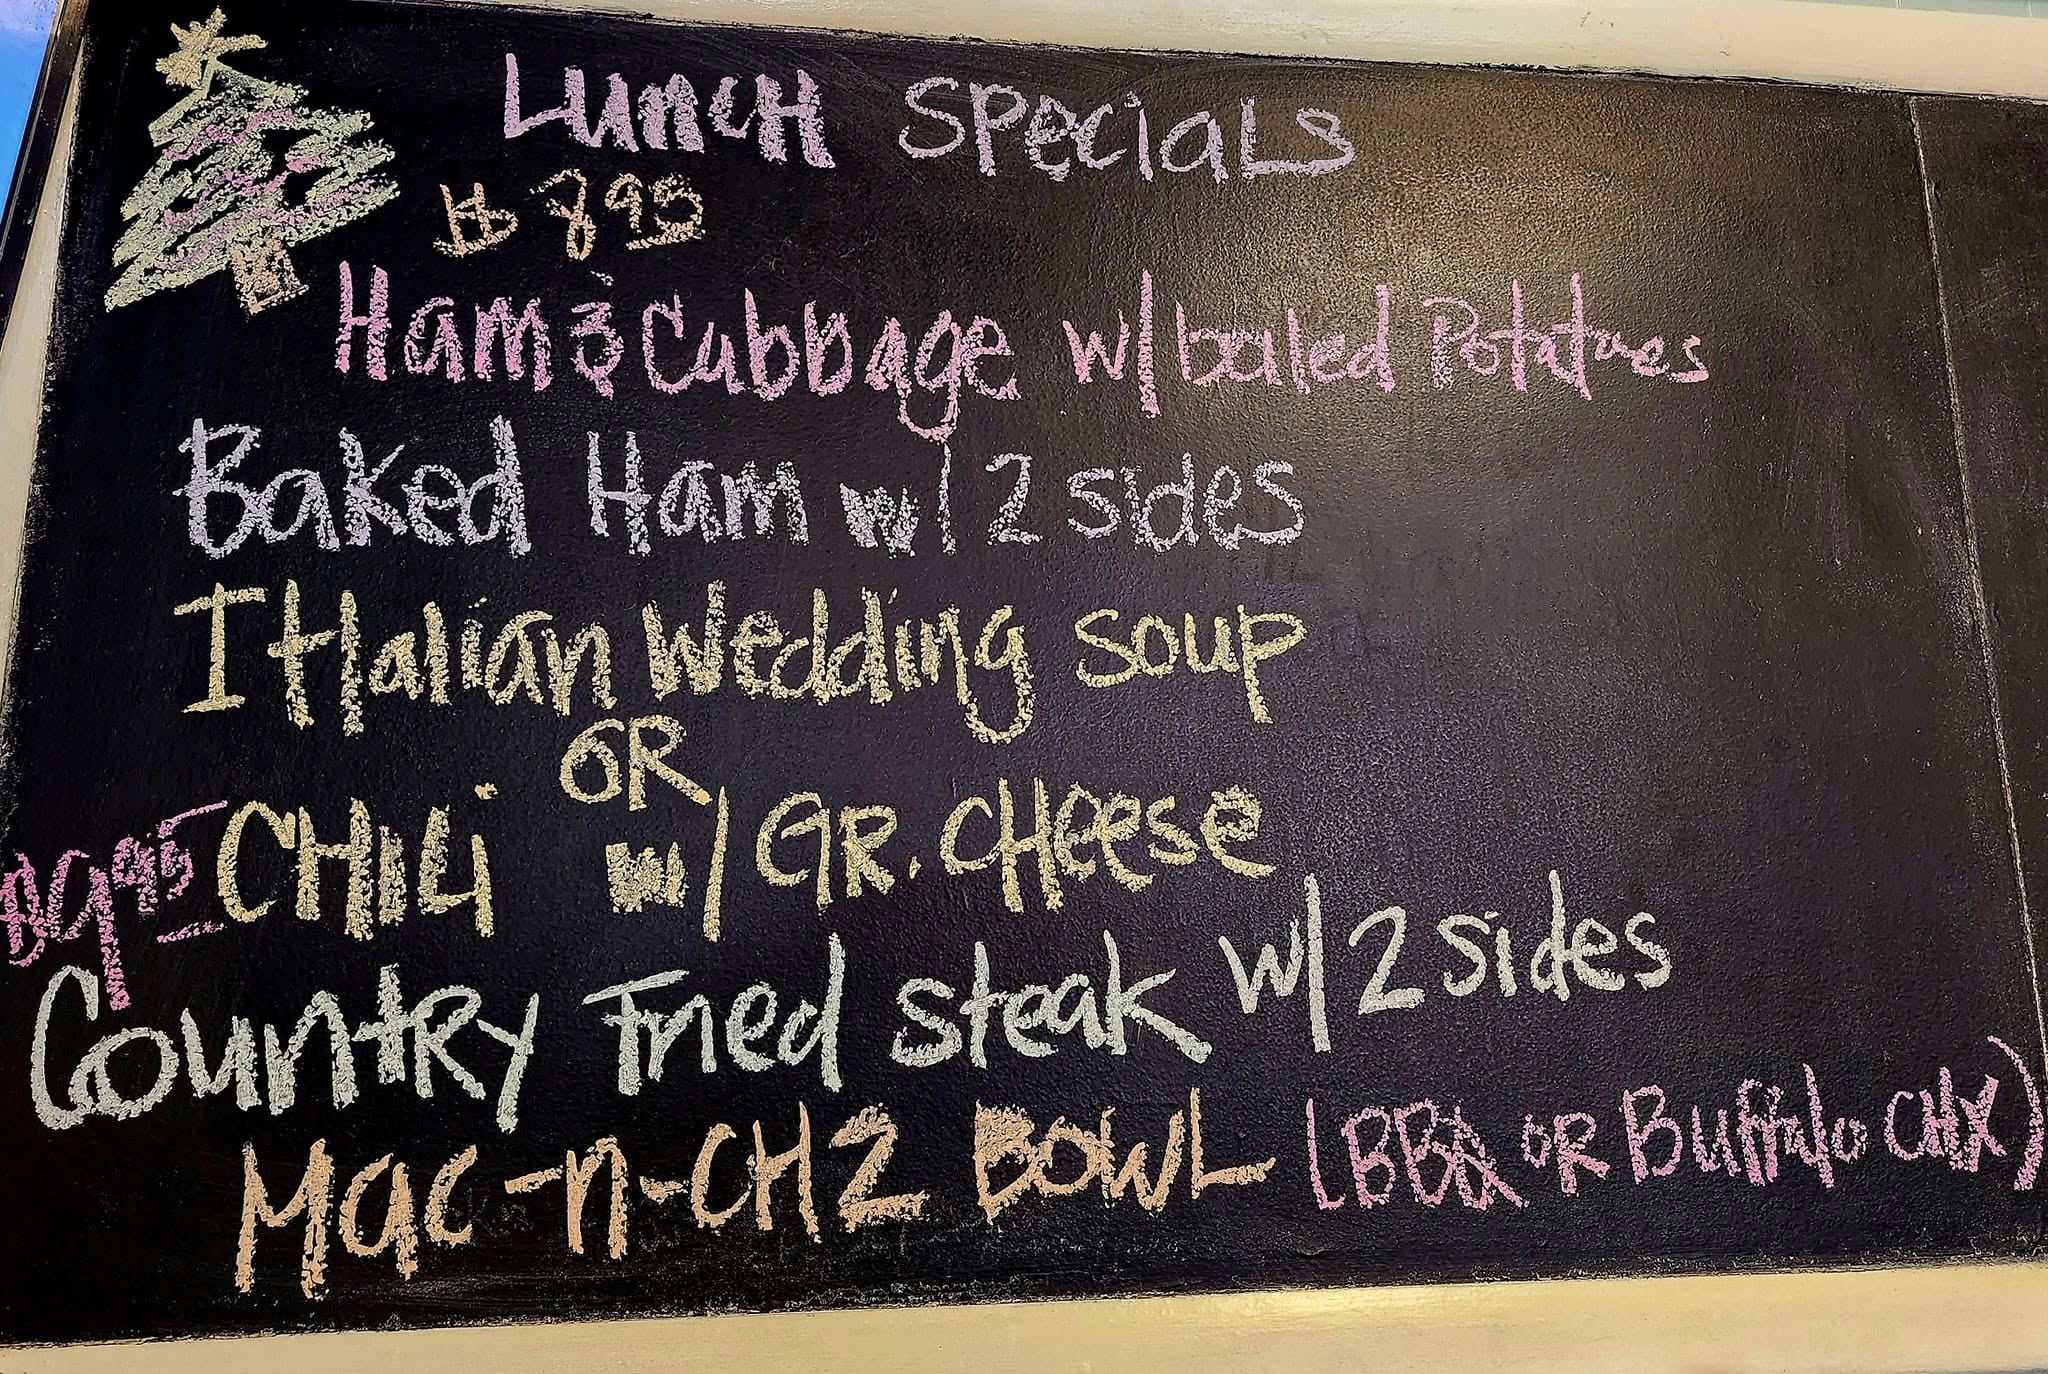 Lunch Specials
$ 8 95
Ham & Cabbage w/ boiled Potatoes
Baked Ham w/ 2 sides
Italian Wedding Soup
OR
CHILi w/ GR. CHeese
$9 95
Country Fried Steak w/ 2 sides
Mac-n-CHZ BOWL (BBQ OR Buffalo CHX)